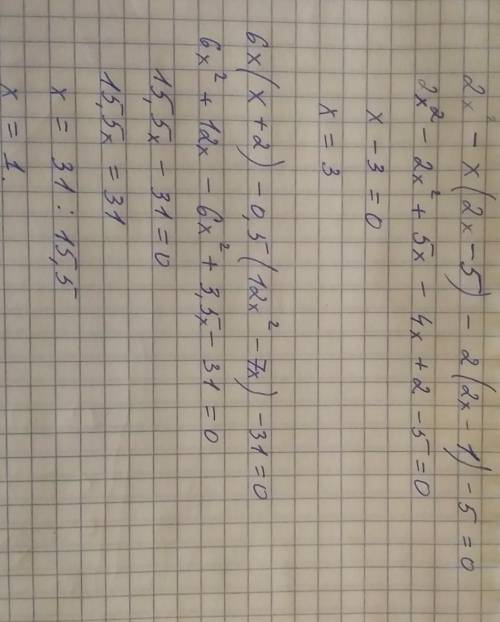 2x² - x(2x - 5) - 2(2x - 1) - 5 = 0
2x² - 2x² + 5x - 4x + 2 - 5 = 0
x - 3 = 0
x = 3
6x(x + 2) - 0,5(12x² - 7x) - 31 = 0
6x² + 12x - 6x² + 3,5x - 31 = 0
15,5x - 31 = 0
15,5x = 31
x = 31 : 15,5
x = 1.